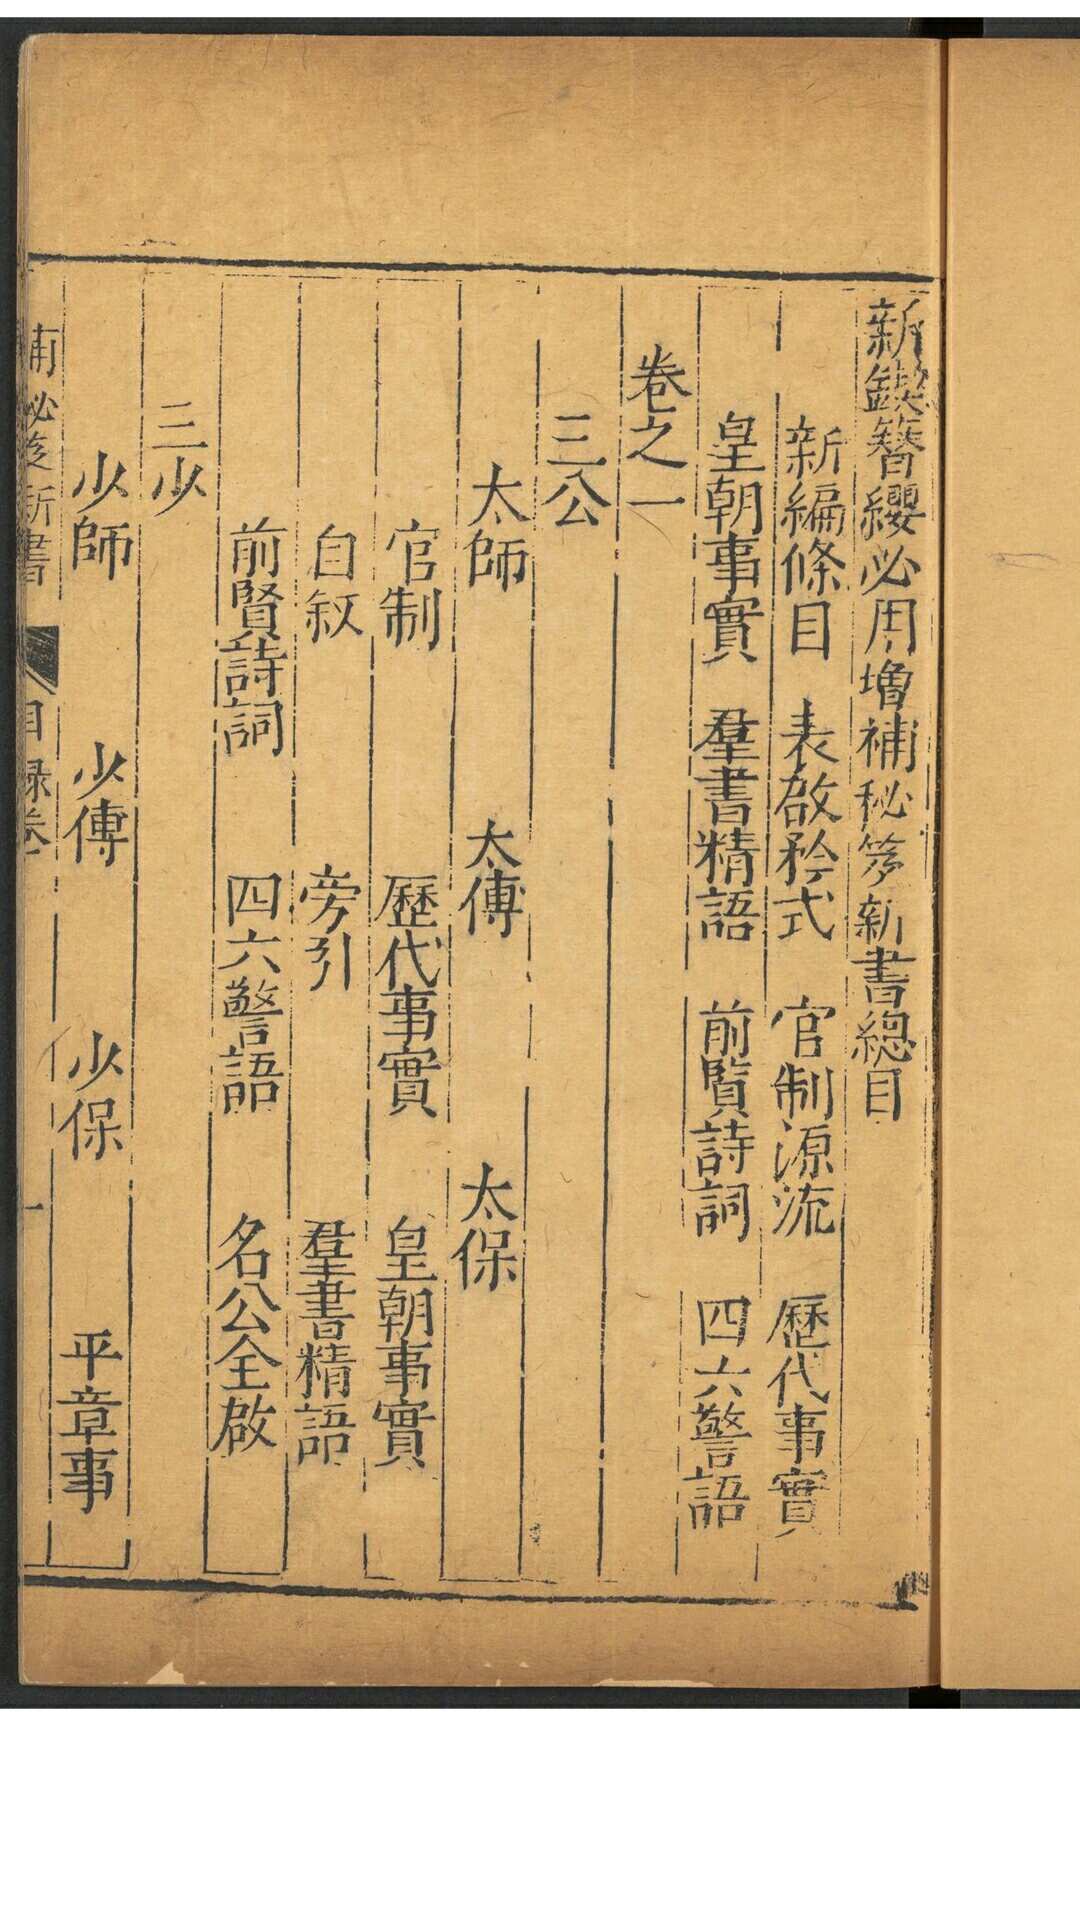 新鍥簪纓必用增補秘笈新書總目
新編條目 表啟矜式 官制源流 歷代事實
皇朝事實 羣書精語 前賢詩詞 四六警語
卷之一
三公
太師 太傅 太保
官制 歷代事實 皇朝事實
自叙 旁引 羣書精語
前賢詩詞 四六警語 名公全啟
三少
少師 少傅 少保 平章事
補秘笈新書 目録卷 一